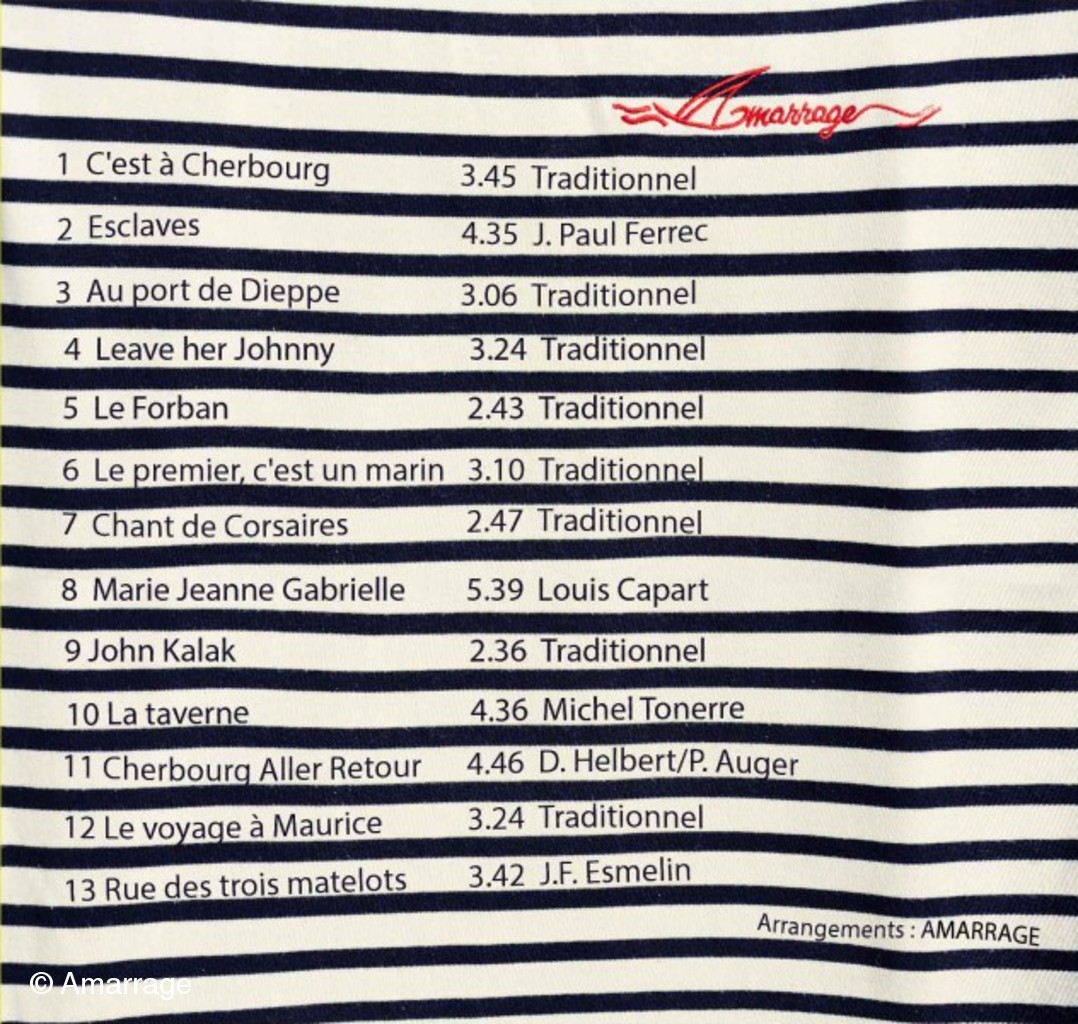 Amarrage
1 C'est à Cherbourg 3.45 Traditionnel
2 Esclaves 4.35 J. Paul Ferrec
3 Au port de Dieppe 3.06 Traditionnel
4 Leave her Johnny 3.24 Traditionnel
5 Le Forban 2.43 Traditionnel
6 Le premier, c'est un marin 3.10 Traditionnel
7 Chant de Corsaires 2.47 Traditionnel
8 Marie Jeanne Gabrielle 5.39 Louis Capart
9 John Kalak 2.36 Traditionnel
10 La taverne 4.36 Michel Tonerre
11 Cherbourg Aller Retour 4.46 D. Helbert/P. Auger
12 Le voyage à Maurice 3.24 Traditionnel
13 Rue des trois matelots 3.42 J.F. Esmelin
Arrangements : AMARRAGE
© Amarrage